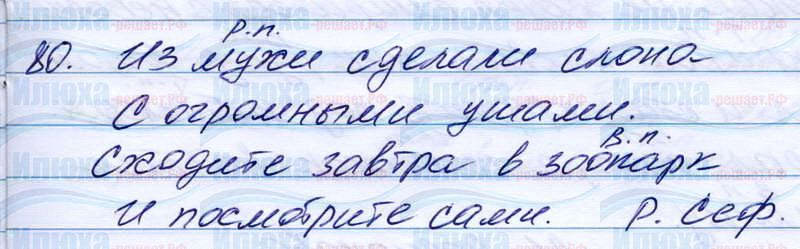 р.п.
80. Из мухи сделали слона
с огромными ушами.
в.п.
Сходите завтра в зоопарк
и посмотрите сами. Р. Сеф.